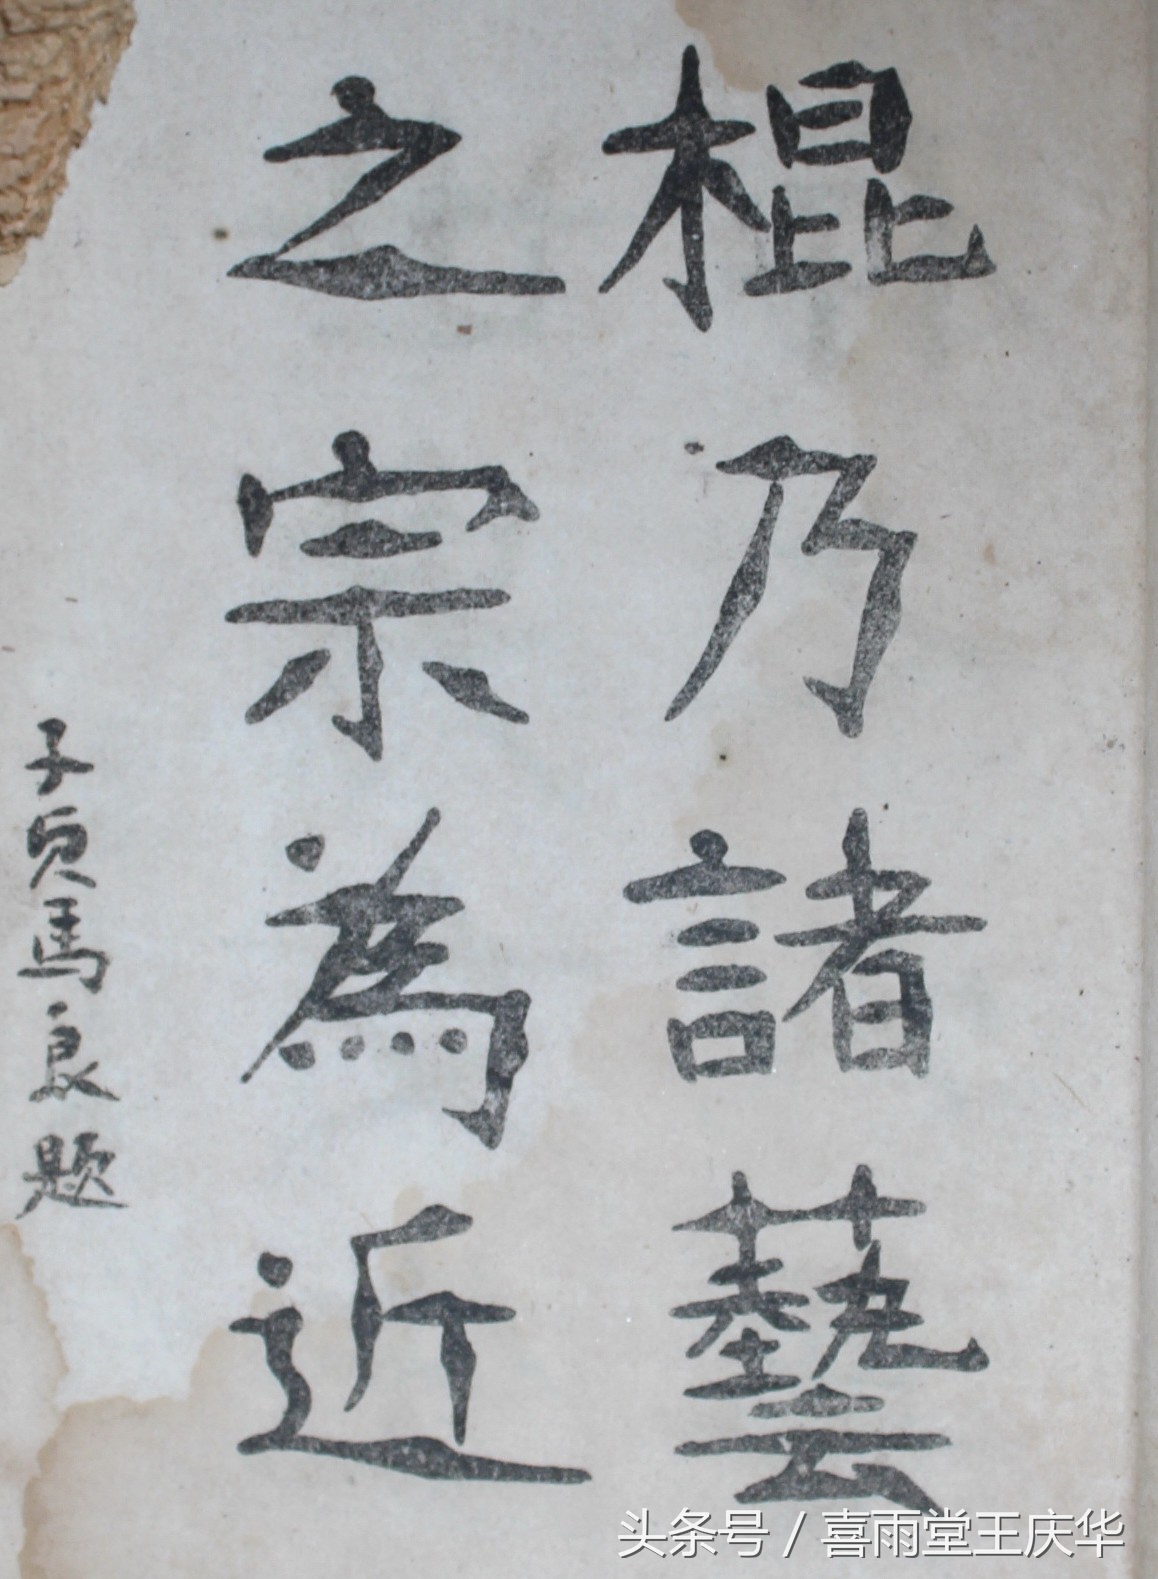 棍乃諸藝
之宗為近
子貞馬良题
头条号 / 喜雨堂王庆华